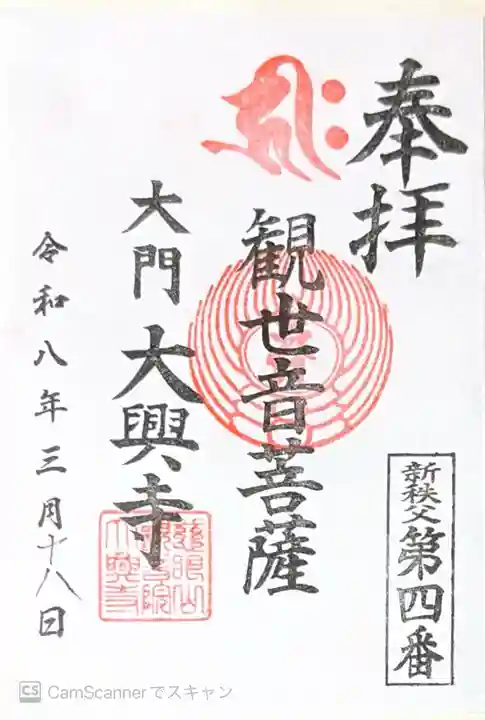 奉拝
新秩父第四番
観世音菩薩
大門 大興寺
令和八年三月十八日
CS CamScannerでスキャン